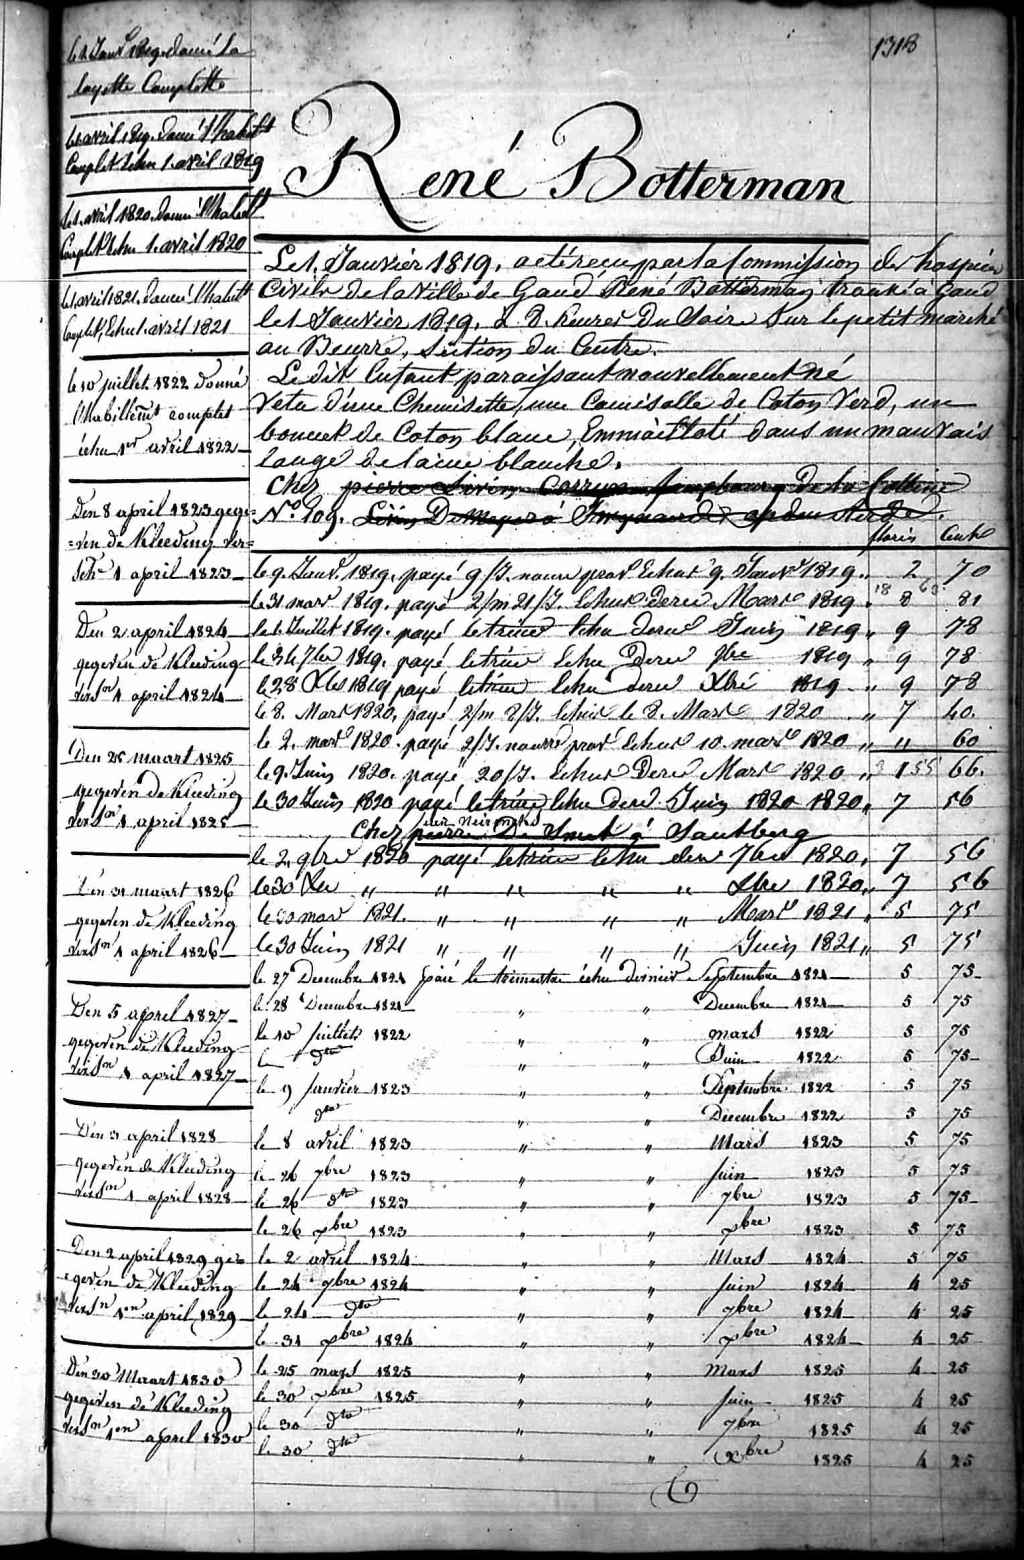 1318
René Botterman
le 1. Janv. 1819. donné la
layette Complette
le 1 avril 1819. donné l'habillt
Complet échu 1. avril 1819
le 1. avril 1820. donné l'habillt
Complet échu 1. avril 1820
le 1 avril 1821. donné l'habillt
Complet, Echu 1. avril 1821
le 10 juillet 1822 donné
l'habillemt complet
échu 1er avril 1822
Den 8 april 1823 gege=
=ven de Kleeding ver=
sche 1 april 1823
Den 2 april 1824
gegeven de Kleeding
versn 1 april 1824
Den 25 maart 1825
gegeven de Kleeding
versn 1 april 1825
Den 31 maart 1826
gegeven de Kleeding
versn 1 april 1826
Den 5 april 1827
gegeven de Kleeding
versn 1 april 1827
Den 3 april 1828
gegeven de Kleeding
versn 1 april 1828
Den 2 april 1829 ge=
=geven de Kleeding
versn 1en april 1829
Den 30 Maart 1830
gegeven de Kleeding
versn 1en april 1830
Le 1. Janvier 1819, a été reçu par la Commission des hospices
Civils de la Ville de Gand René Botterman trouvé à Gand
le 1 Janvier 1819. à 8. heures du Soir Sur le petit marché
au Beurre, Section du Centre.
Le dit Enfant paraissant nouvellement né
Vetu d'une Chemisette, une Camisolle de Coton Verd, un
bonnet de Coton blanc, Emmailloté dans un mauvais
lange de laine blanche.
Chez pierre Livin faubourg De la Colline
No 109. Livin De Meyer à
florins Cents
le 9. Janvr 1819. payé 9/J. nourre provre Echue 9. Janvr 1819 " 2 70
le 31 mars 1819. payé 2/m 21/J. Echue derer Mars 1819 " 8 81
18 60
le 1 Juillet 1819. payé le trime échu derer Juin 1819 " 9 78
le 7bre 1819. payé le trime échu derer 7bre 1819 " 9 78
le 28 Xbre 1819 payé le trime échu derer Xbre 1819 " 9 78
le 8. Mars 1820. payé 2/m 8/J. échue le 8. Mars 1820 " 7 40.
le 2. mars 1820. payé 2/J. nourre provre Echue 10. mars 1820 " " 60
le 9. Juin 1820. payé 20/J. Echue Derer Mars 1820 " 1 66.
le 30 Juin 1820 payé le trime échu derer Juin 1820 1820 " 7 56
Chez pierre De Smet à Santberg
le 2. 9bre 1820 payé le trime échu derer 7bre 1820 " 7 56
le 30 Xbre " " " " " Xbre 1820 " 7 56
le 30 mars 1821. " " " " Mars 1821 " 5 75
le 30 Juin 1821 " " " " Juin 1821 " 5 75
le 27 Decembre 1821 payé le trimestre échu dernier Septembre 1821 5 75
le 28 Decembre 1821 " " Decembre 1821 5 75
le 10 juillet 1822 " " mars 1822 5 75
le dto " " Juin 1822 5 75
le 9 janvier 1823 " " Septembre 1822 5 75
dto " " Decembre 1822 5 75
le 8 avril 1823 " " Mars 1823 5 75
le 26 7bre 1823 " " juin 1823 5 75
le 26 dto 1823 " " 7bre 1823 5 75
le 26 xbre 1823 " " xbre 1823 5 75
le 2 avril 1824 " " Mars 1824 5 75
le 24 7bre 1824 " " juin 1824 4 25
le 24 dto " " 7bre 1824 4 25
le 31 xbre 1824 " " xbre 1824 4 25
le 25 mars 1825 " " Mars 1825 4 25
le 30 xbre 1825 " " juin 1825 4 25
le 30 dto " " 7bre 1825 4 25
le 30 dto " " xbre 1825 4 25